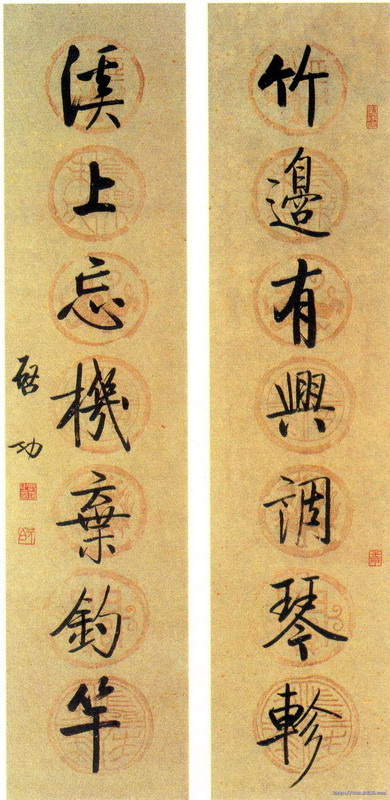 竹邊有興調琴軫
溪上忘機棄釣竿
啓功